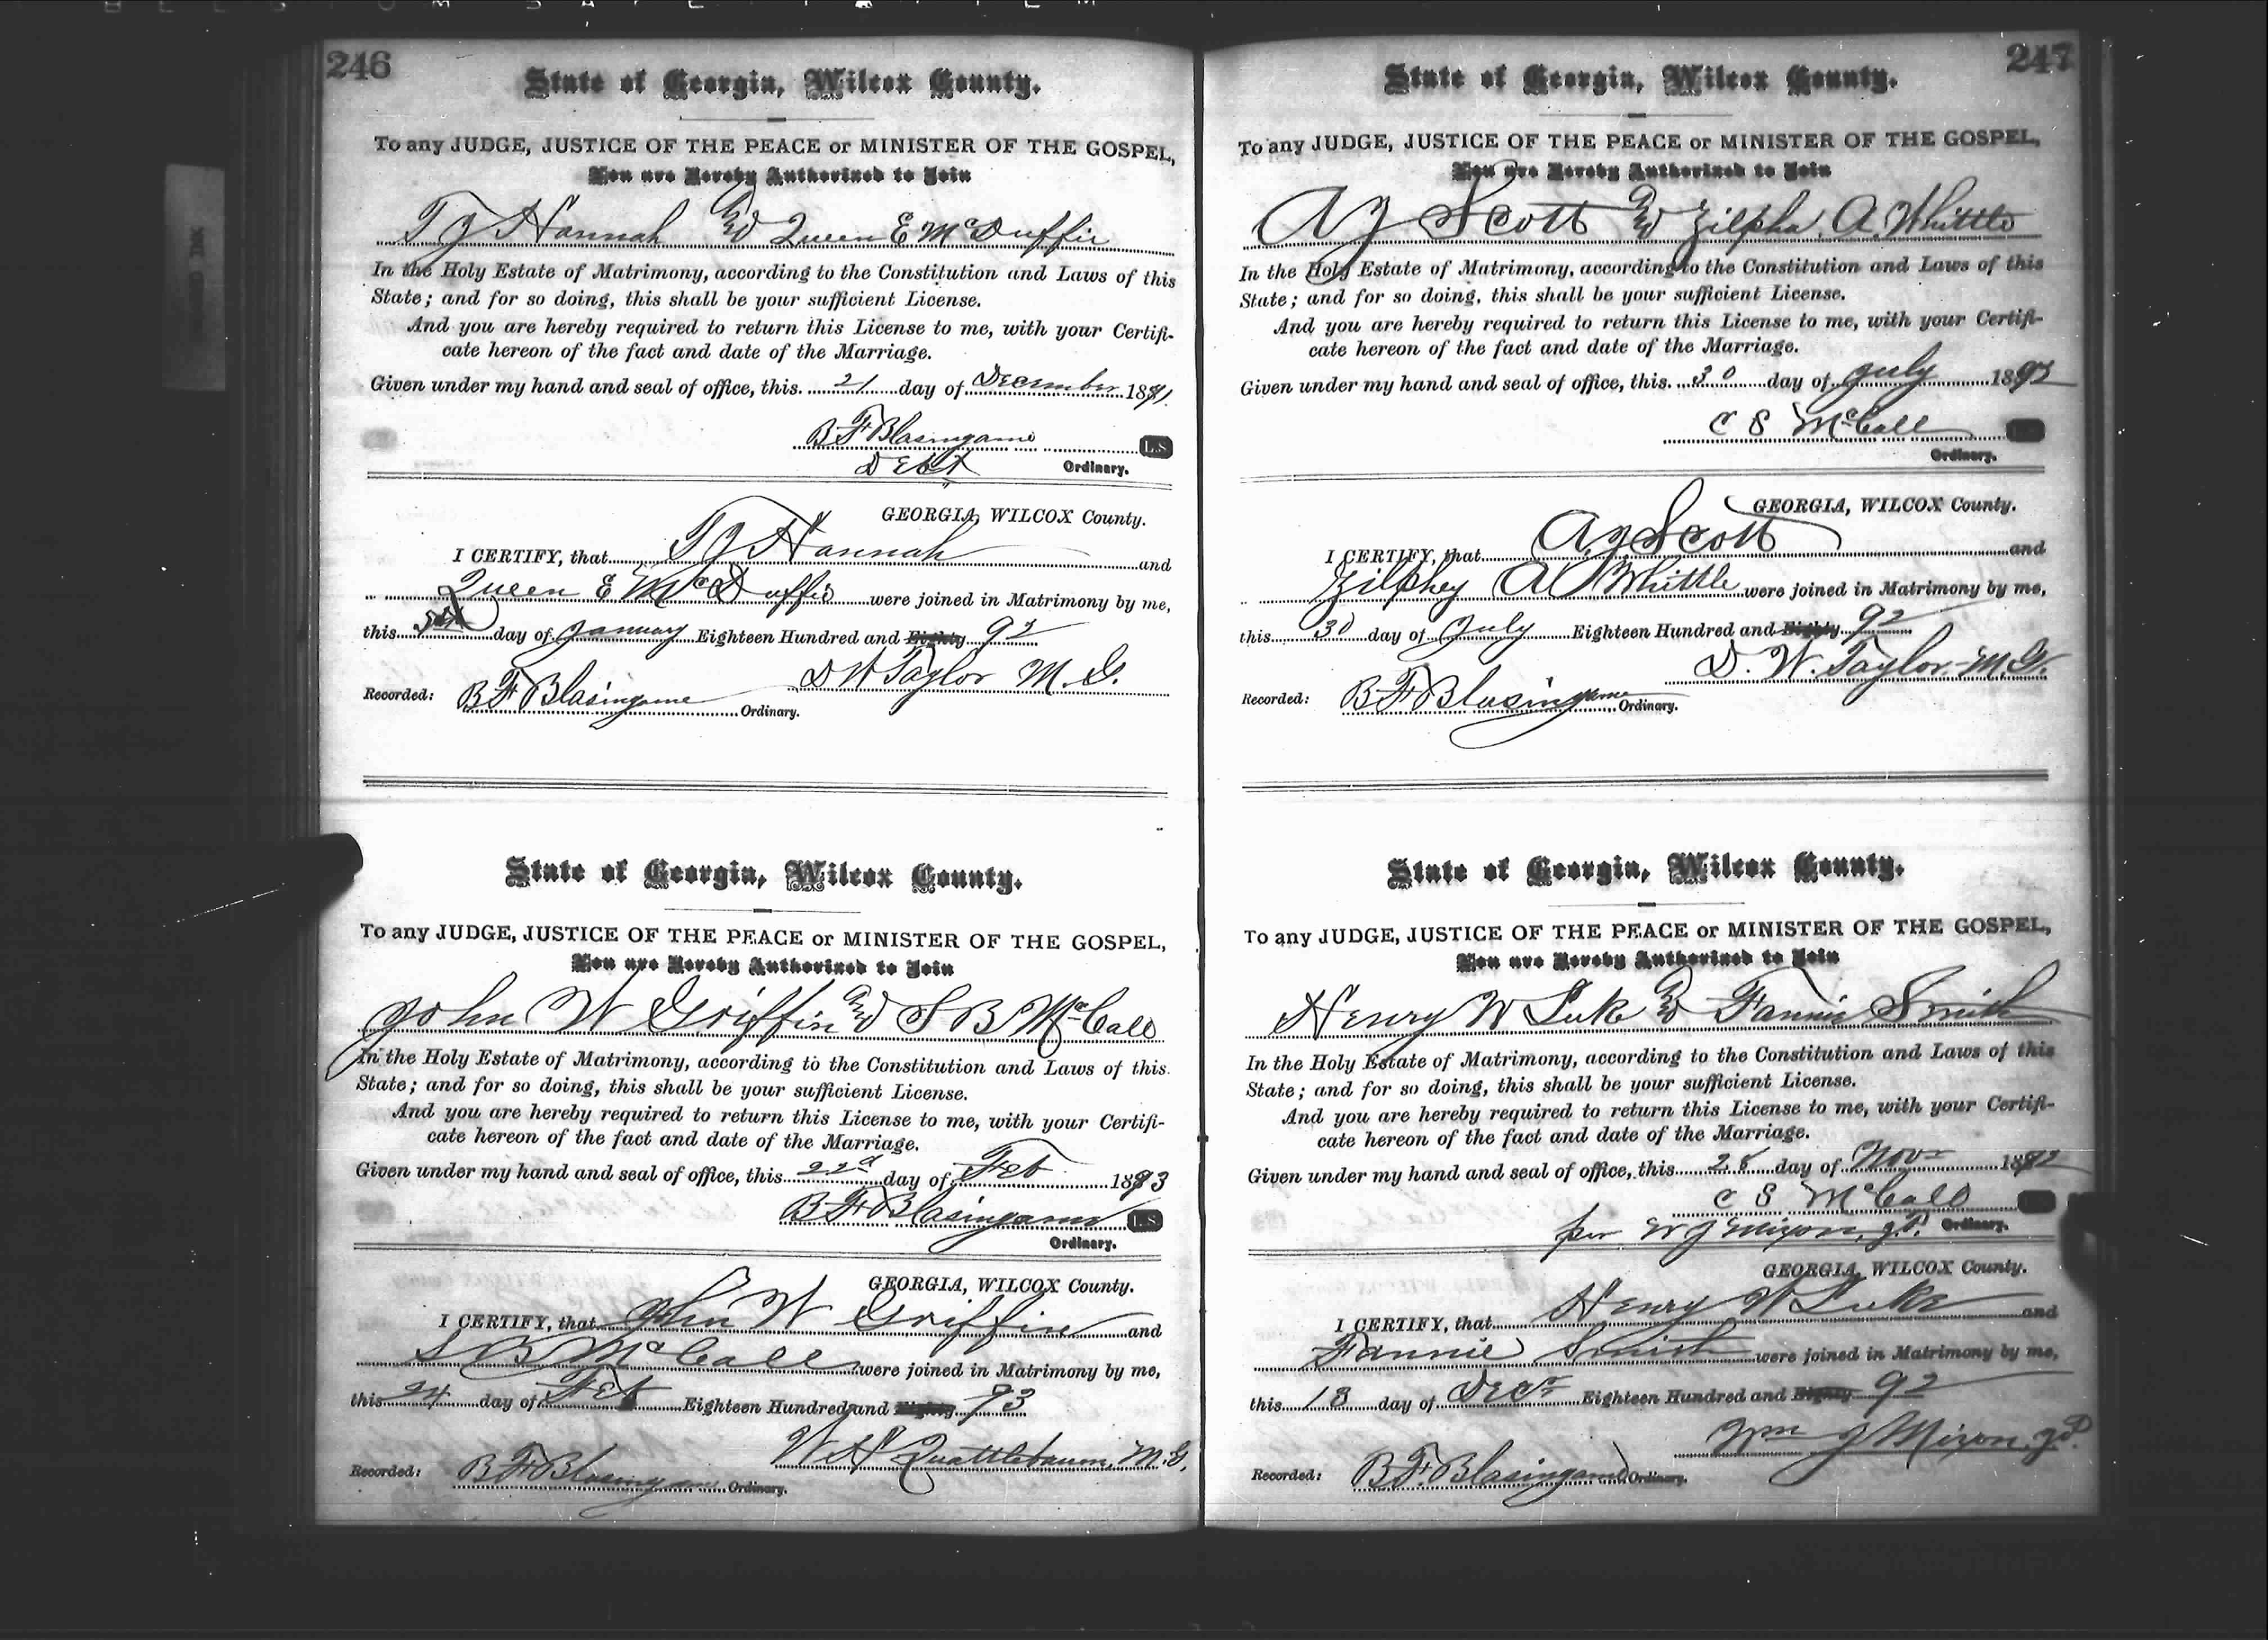 246
State of Georgia, Wilcox County.
To any JUDGE, JUSTICE OF THE PEACE or MINISTER OF THE GOSPEL,
You are Hereby Authorized to Join
T J Hannah and Queen E McDuffie
In the Holy Estate of Matrimony, according to the Constitution and Laws of this
State; and for so doing, this shall be your sufficient License.
And you are hereby required to return this License to me, with your Certifi-
cate hereon of the fact and date of the Marriage.
Given under my hand and seal of office, this 21 day of December 1891.
B F Blasingame L.S.
Ordinary.
GEORGIA, WILCOX County.
I CERTIFY, that T J Hannah and
Queen E McDuffie were joined in Matrimony by me,
this day of January Eighteen Hundred and Eighty 92
D W Taylor M. G.
Recorded: B F Blasingame Ordinary.
State of Georgia, Wilcox County.
To any JUDGE, JUSTICE OF THE PEACE or MINISTER OF THE GOSPEL,
You are Hereby Authorized to Join
John W Griffin and S B McCall
In the Holy Estate of Matrimony, according to the Constitution and Laws of this
State; and for so doing, this shall be your sufficient License.
And you are hereby required to return this License to me, with your Certifi-
cate hereon of the fact and date of the Marriage.
Given under my hand and seal of office, this 22d day of Feb 1893
B F Blasingame L.S.
Ordinary.
GEORGIA, WILCOX County.
I CERTIFY, that John W Griffin and
S B McCall were joined in Matrimony by me,
this 24 day of Feb Eighteen Hundred and Eighty 93
W H Quattlebaum, M.G.
Recorded: B F Blasingame Ordinary.
247
State of Georgia, Wilcox County.
To any JUDGE, JUSTICE OF THE PEACE or MINISTER OF THE GOSPEL,
You are Hereby Authorized to Join
A J Scott and Zilpha A. Whittle
In the Holy Estate of Matrimony, according to the Constitution and Laws of this
State; and for so doing, this shall be your sufficient License.
And you are hereby required to return this License to me, with your Certifi-
cate hereon of the fact and date of the Marriage.
Given under my hand and seal of office, this 30 day of July 1892
C S McCall
Ordinary.
GEORGIA, WILCOX County.
I CERTIFY, that A J Scott and
Zilphey A Whittle were joined in Matrimony by me,
this 30 day of July Eighteen Hundred and Eighty 92
D. W. Taylor M.G.
Recorded: B F Blasingame Ordinary.
State of Georgia, Wilcox County.
To any JUDGE, JUSTICE OF THE PEACE or MINISTER OF THE GOSPEL,
You are Hereby Authorized to Join
Henry W Luke and Fannie Smith
In the Holy Estate of Matrimony, according to the Constitution and Laws of this
State; and for so doing, this shall be your sufficient License.
And you are hereby required to return this License to me, with your Certifi-
cate hereon of the fact and date of the Marriage.
Given under my hand and seal of office, this 28 day of Novr 1892
C S McCall
per W J Mixon, J.P. Ordinary.
GEORGIA, WILCOX County.
I CERTIFY, that Henry W Luke and
Fannie Smith were joined in Matrimony by me,
this 18 day of Decr Eighteen Hundred and Eighty 92
Wm J Mixon J.P.
Recorded: B.F. Blasingame Ordinary.